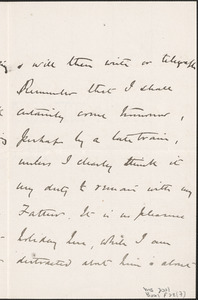 s will then write or telegraph
Remember that I shall
certainly come tomorrow,
perhaps by a late train,
unless I clearly think it
my duty to remain with my
Father. It is no pleasure
holiday here, while I am
distracted about him & about
Ms. 2011